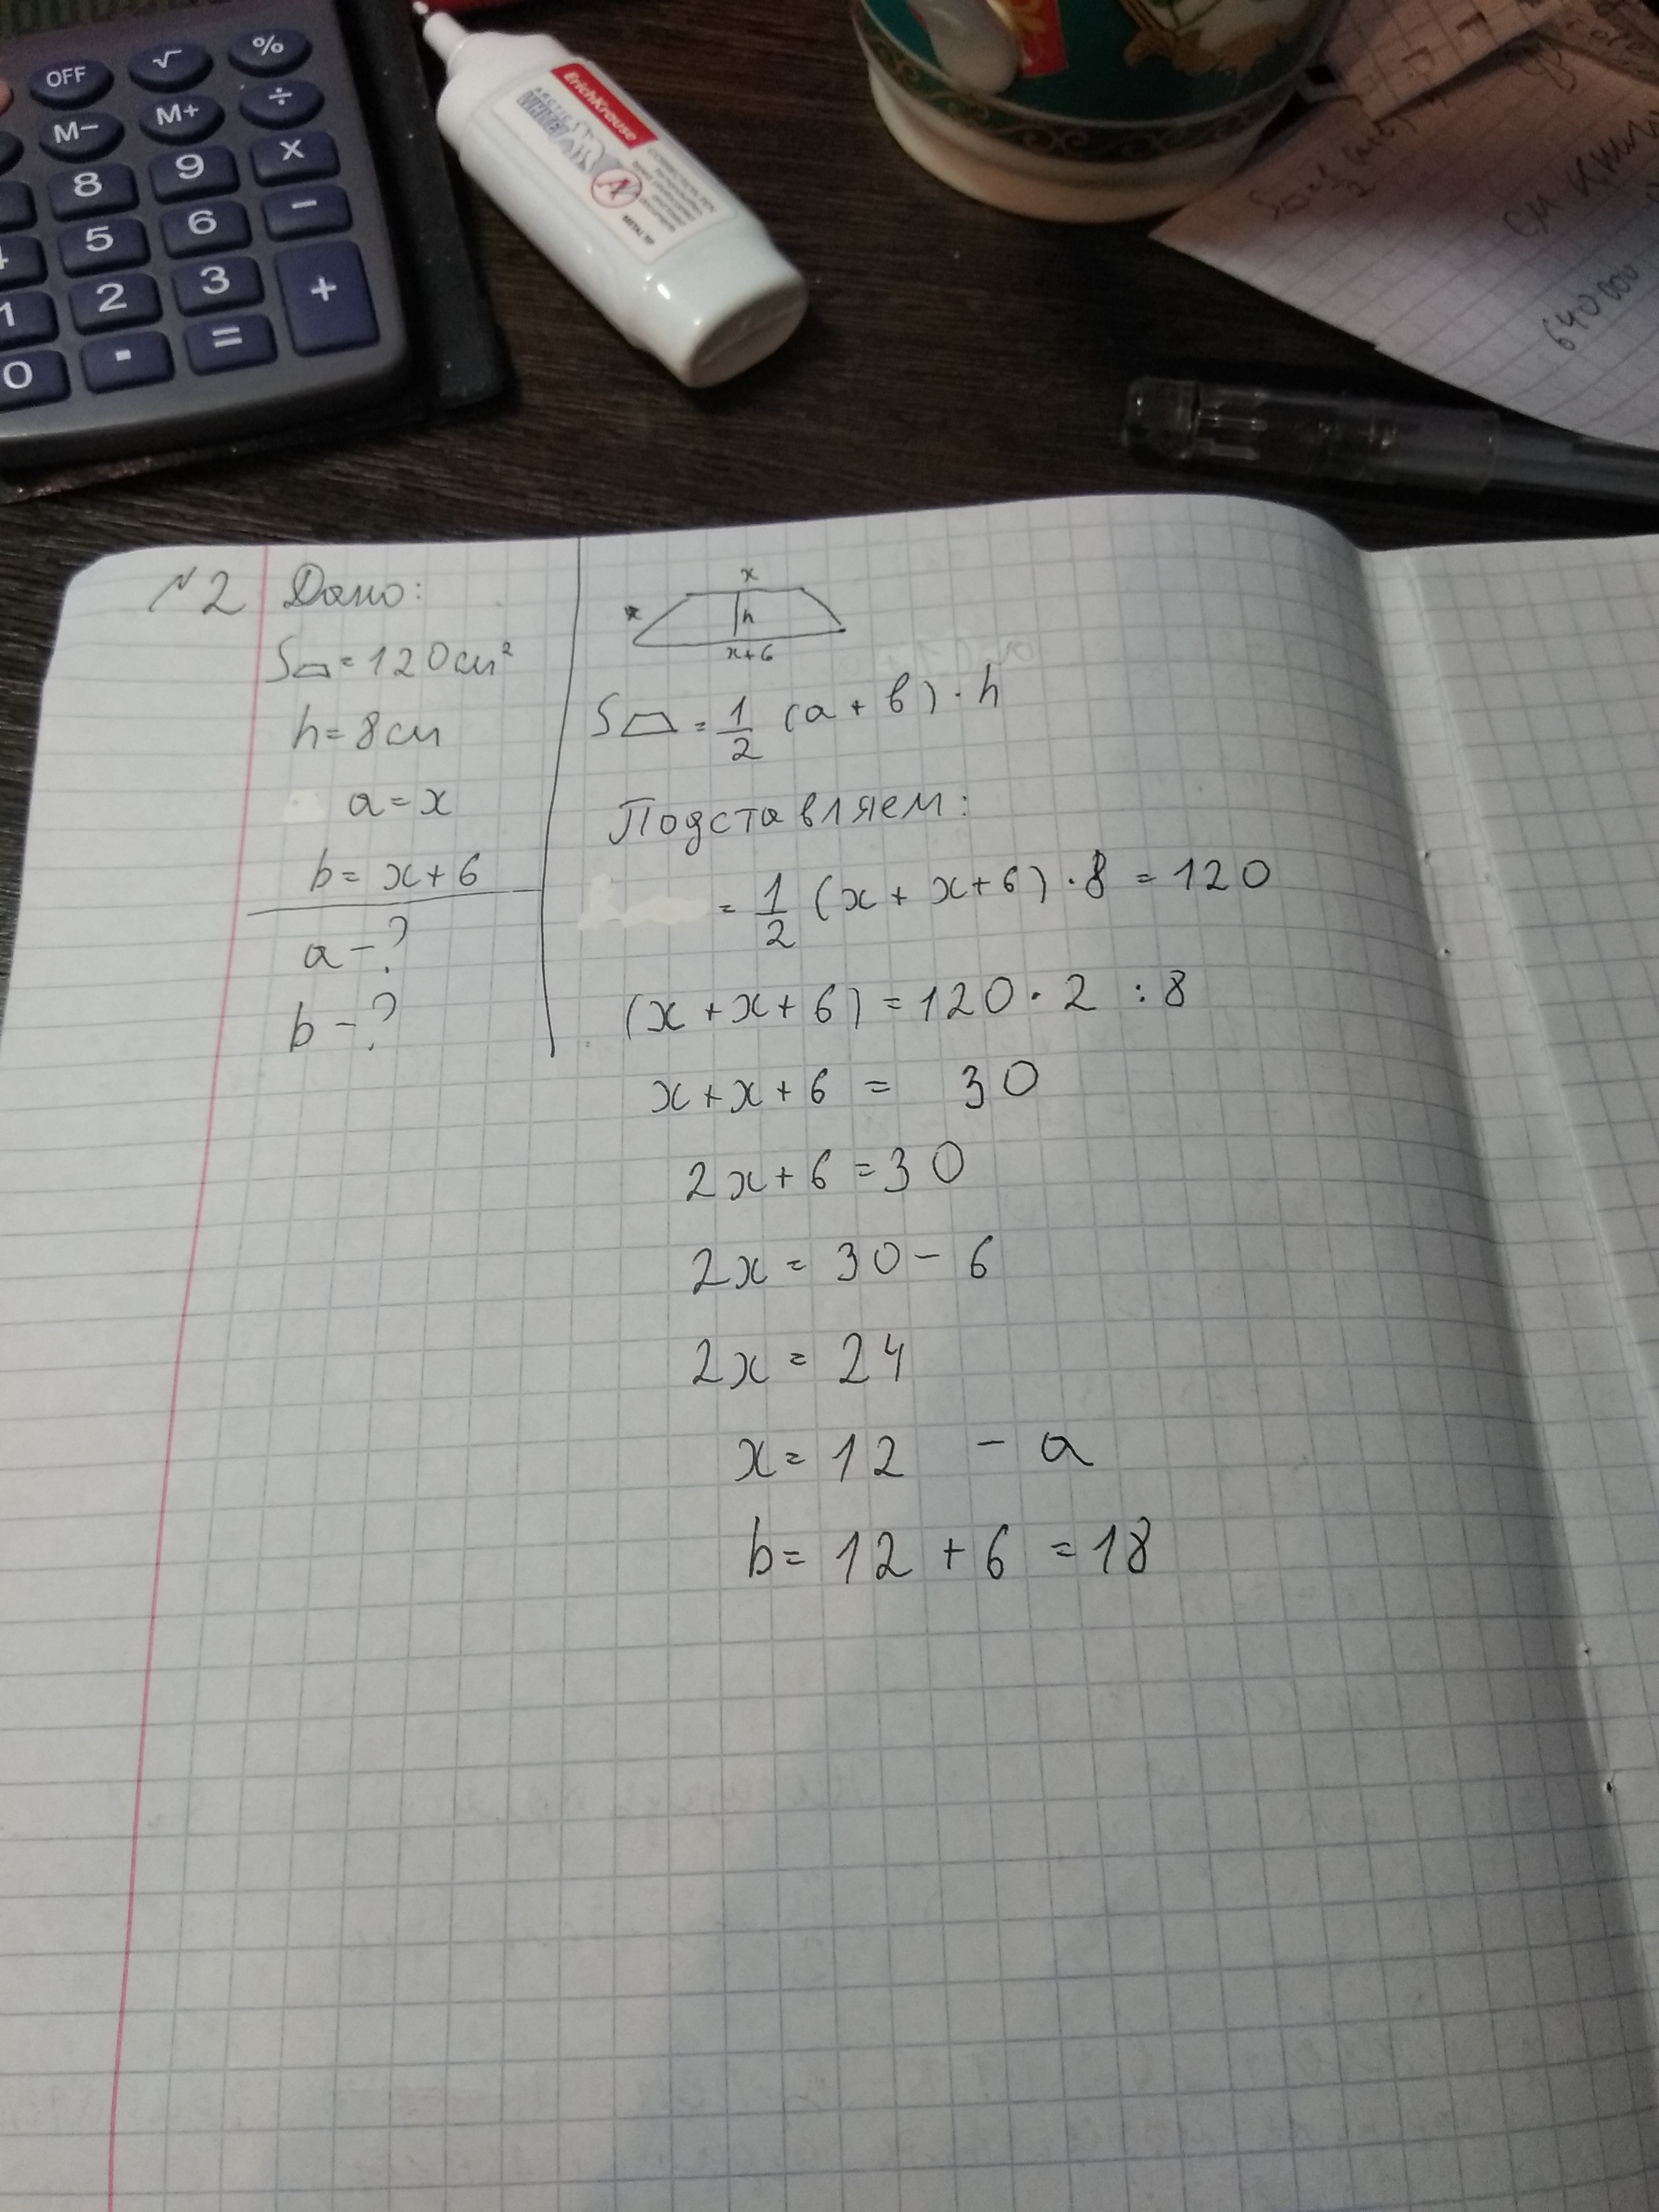 OFF √ %
M− M+ ÷
8 9 x
5 6 −
1 2 3 +
0 . =
ErichKrause
ARCTIC
WHITE
METAL TIP
640000
№2 Дано:
S⏢ = 120 см²
h = 8 см
a = x
b = x + 6
a – ?
b – ?
x
x
h
x+6
S⏢ = 1/2 (a + b) · h
Подставляем:
= 1/2 (x + x + 6) · 8 = 120
(x + x + 6) = 120 · 2 : 8
x + x + 6 = 30
2x + 6 = 30
2x = 30 − 6
2x = 24
x = 12 – a
b = 12 + 6 = 18